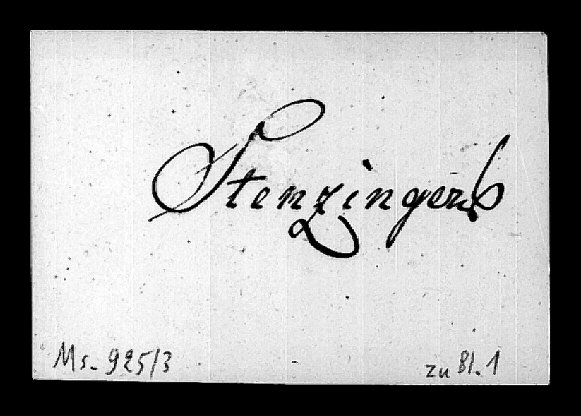 Stenzinger
Ms. 925/3
zu Bl. 1